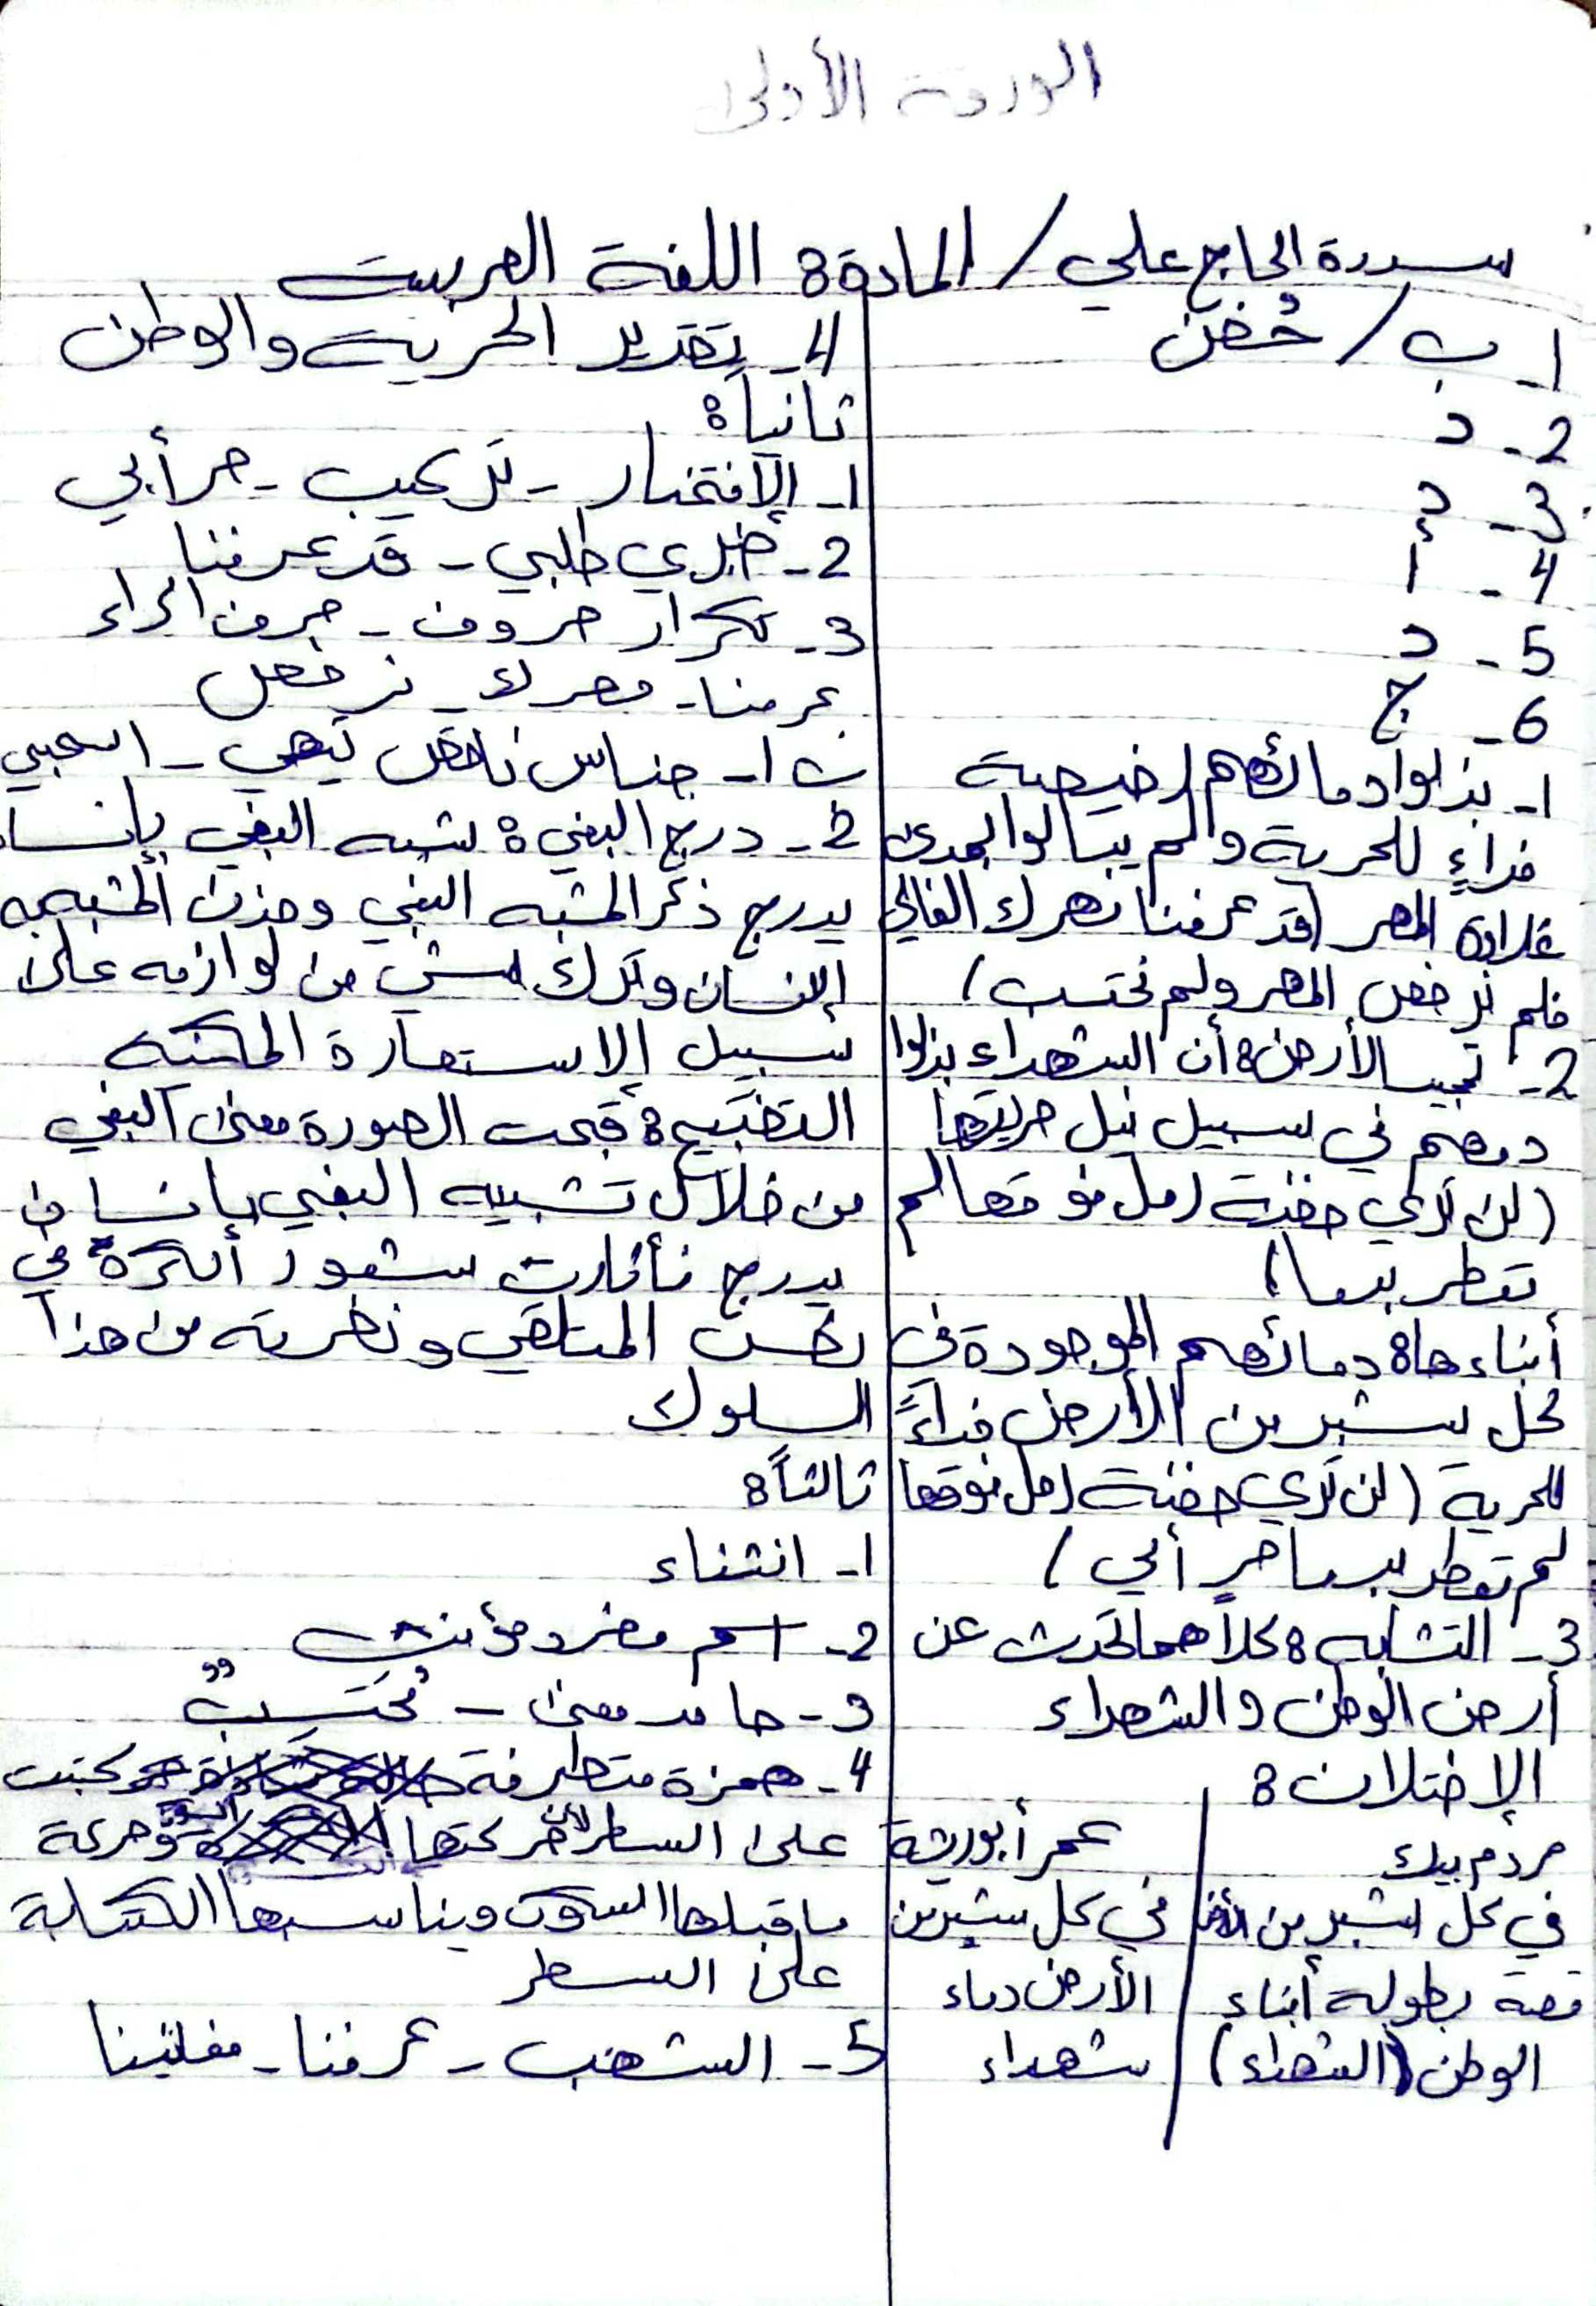 الورقة الأولى
سدرة الحاج علي / المادة: اللغة العربية
1- ب / حُضن
2- د
3- د
4- أ
5- د
6- ج
1- بذلوا دمائهم رخيصة
فداءٍ للحرية ولم يبالوا بمدى
غلاوة المهر (قد عرفنا مهرك الغالي
فلم نرخص المهر ولم نحتسب)
2- تجيب الأرض: أن الشهداء بذلوا
دمهم في سبيل نيل حريتها
(لن تري حفنة رمل فوقها لم
تعطر بدما)
أبناءها: دمائهم الموجودة في
كل شبر من الأرض فداءً
للحرية (لن تري حفنة رمل فوقها
لم تعطر بدما حرٍ أبي)
3- التشابه: كلاهما تحدث عن
أرض الوطن والشهداء
الإختلاف:
مردم بيك
في كل شبر من الأرض
قصة بطولة أبناء
الوطن (الشهداء)
عمر أبو ريشة
في كل شبر من
الأرض دماء
شهداء
4- تقدير الحرية والوطن
ثانياً:
1- الإفتخار - تركيب - حر أبي
2- خبري طلبي - قد عرفنا
3- تكرار حروف - حرف الراء
عرفنا - مهرك - نرخص
ت 1- جناس ناقص تيهي - اسحبي
2- درج البغي: شبه البغي بإنسان
يدرج ذكر المشبه البغي وحذف المشبه به
الإنسان وترك شي من لوازمه على
سبيل الإستعارة المكنية
التقبيح: قبحت الصورة معنى البغي
من خلال تشبيه البغي بإنسان
يدرج فأثارت شعور الكره في
نفس المتلقي ونفرته من هذا
السلوك
ثالثاً:
1- انثناء
2- اسم مفرد مؤنث
3- جامد معنى - نُحتَسِبْ
4- همزة متطرفة كتبت
على السطر لأن حركتها وحركة
ما قبلها السكون ويناسبها الكتابة
على السطر
5- الشهب - عرفنا - مغانينا